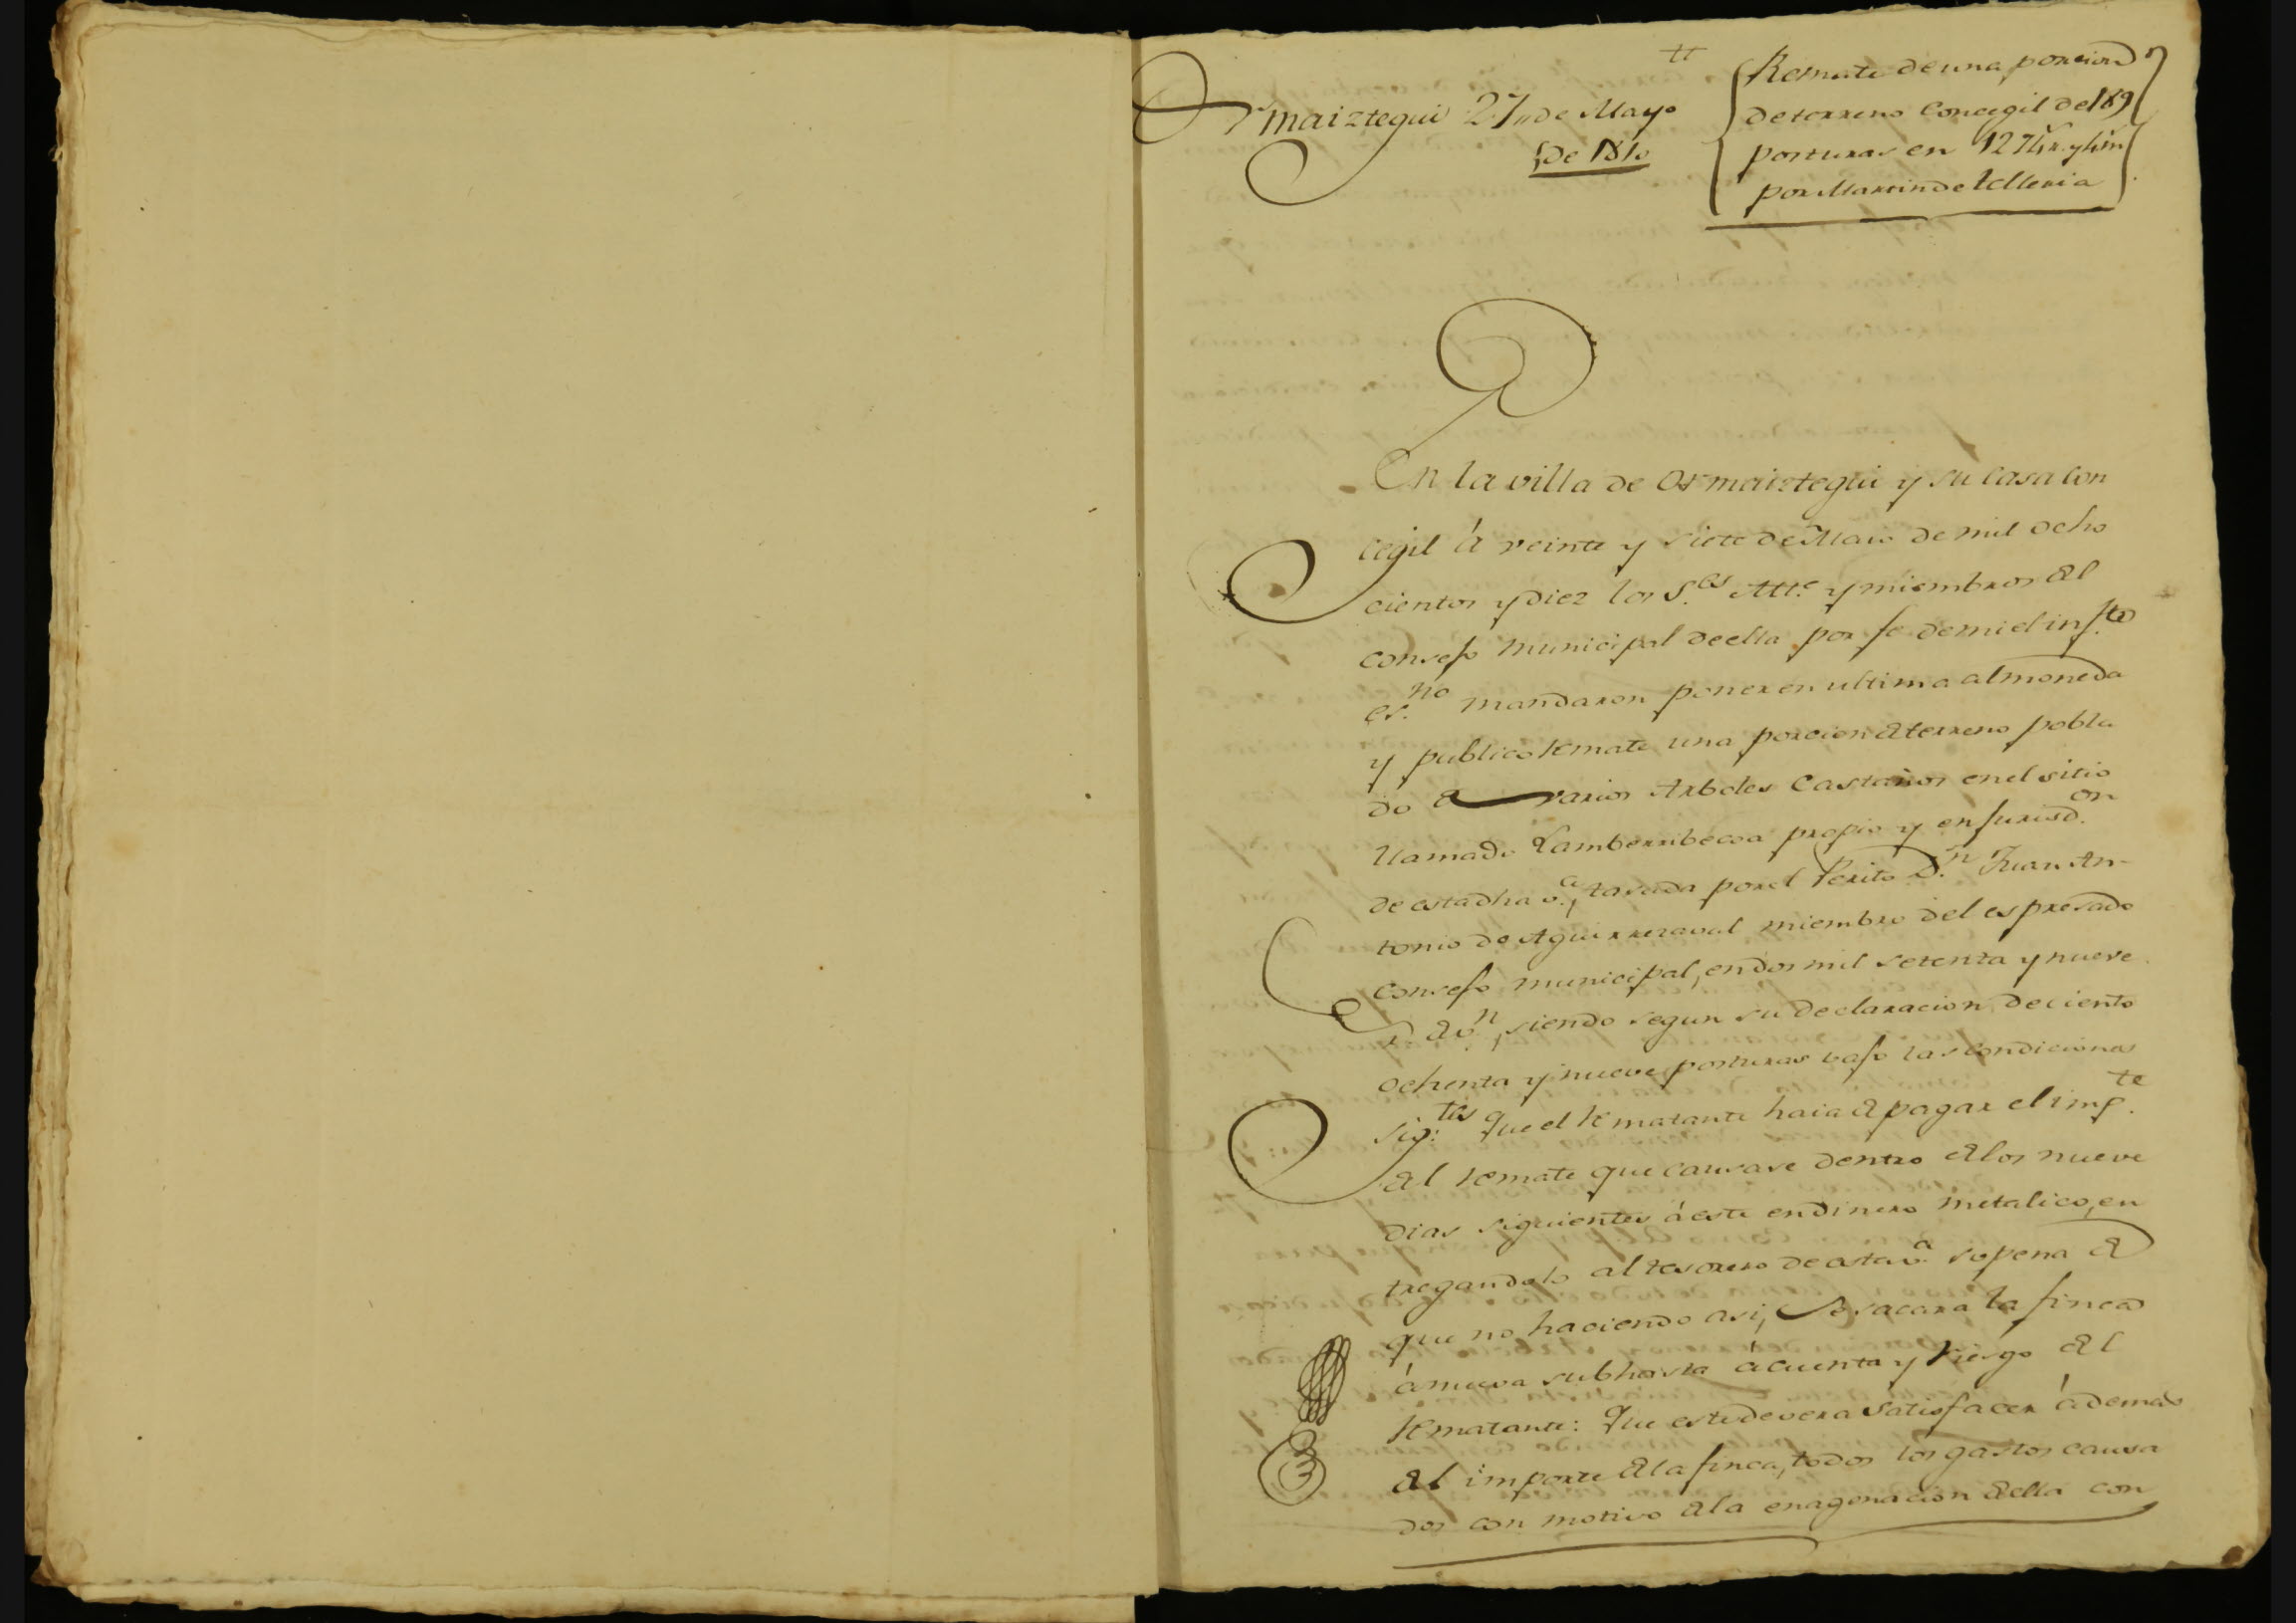 Ormaiztegui 27,, de Mayo
de 1810
Remate de una porcion
de terreno Concegil de 189
posturas en 1274 r. y 4 m
por Martin de Telleria
En la villa de Ormaiztegui y su Casa Con
cegil á veinte y siete de Maio de mil ocho
cientos y diez los S.es Alt.e y miembros del
Consejo Municipal de ella por fe de mi el inf.to
es.no mandaron poner en ultima almoneda
y publico Remate una porcion de terreno pobla
do de varios Arboles Castaños en el sitio
llamado Lamberribecoa propio y en jurisd.on
de esta dha v.a, tasada por el Perito D.n Juan An-
tonio de Aguirrezaval miembro del espresado
Consejo municipal, en dos mil setenta y nueve
r.s de v.n, siendo segun su declaracion de ciento
ochenta y nueve posturas bajo las condiciones
sig.tes Que el Rematante haia de pagar el imp.te
del Remate que causare dentro de los nueve
dias siguientes á este en dinero metalico, en
tregandolo al tesorero de esta v.a so pena de
que no haciendo asi, se sacara la finca
á nueva subhasta á cuenta y riesgo del
Rematante: Que este devera satisfacer ádemas
del importe de la finca, todos los gastos causa
dos con motivo de la enagenacion de ella con